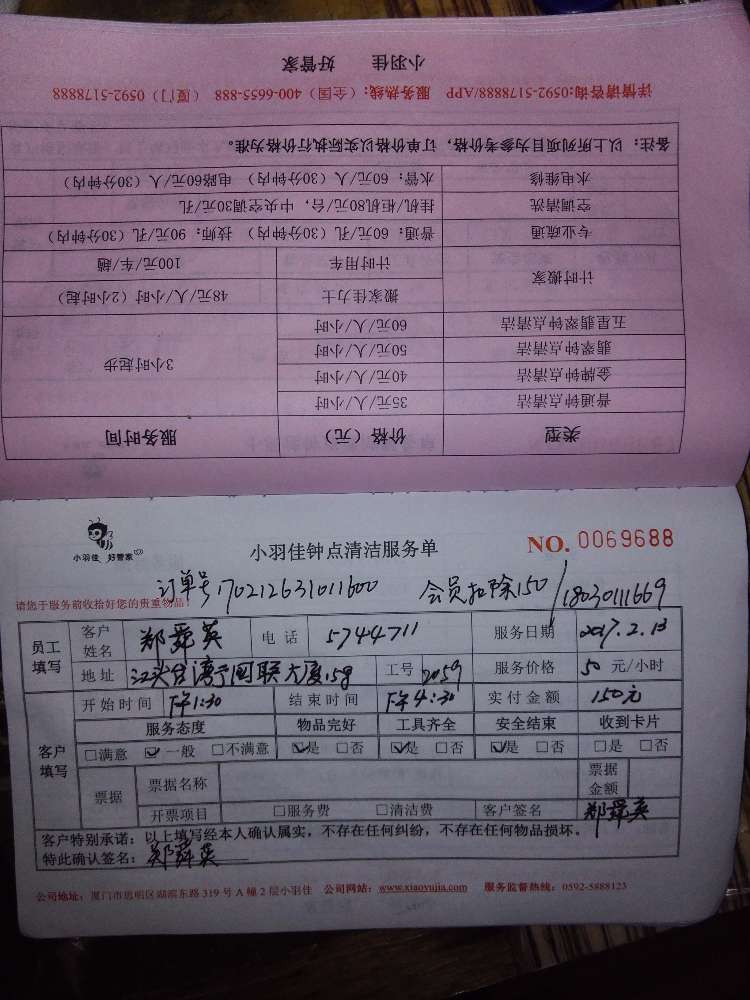 小羽佳 好管家
详情请咨询:0592-5178888/APP 服务热线:（全国）400-6655-888 （厦门）0592-5178888
备注：以上所列项目为参考价格，订单价格以实际执行价格为准。
水电维修 水管：60元/人（30分钟内） 电路60元/人（30分钟内）
空调清洗 挂机/柜机80元/台，中央空调30元/孔
专业疏通 普通：60元/孔（30分钟内） 技师：90元/孔（30分钟内）
计时搬家 计时用车 100元/车/趟
搬家佳力士 48元/人/小时（2小时起）
五星翡翠钟点清洁 60元/人/小时
翡翠钟点清洁 50元/人/小时 3小时起步
金牌钟点清洁 40元/人/小时
普通钟点清洁 35元/人/小时
类型 价格（元） 服务时间
小羽佳 好管家
小羽佳钟点清洁服务单 NO. 0069688
订单号170212631011600 会员扣除150/18030111669
请您于服务前收拾好您的贵重物品！
员工填写 客户姓名 郑舜英 电话 5744711 服务日期 2017.2.13
地址 江头台湾街国联大厦15g 工号 2059 服务价格 50 元/小时
客户填写 开始时间 下午1:30 结束时间 下午4:30 实付金额 150元
服务态度 物品完好 工具齐全 安全结束 收到卡片
□满意 ☑一般 □不满意 ☑是 □否 ☑是 □否 ☑是 □否 □是 □否
票据 票据名称 票据金额
开票项目 □服务费 □清洁费 客户签名 郑舜英
客户特别承诺：以上填写经本人确认属实，不存在任何纠纷，不存在任何物品损坏。
特此确认签名：郑舜英
公司地址：厦门市思明区湖滨东路319号A幢2层小羽佳 公司网站：www.xiaoyujia.com 服务监督热线：0592-5888123